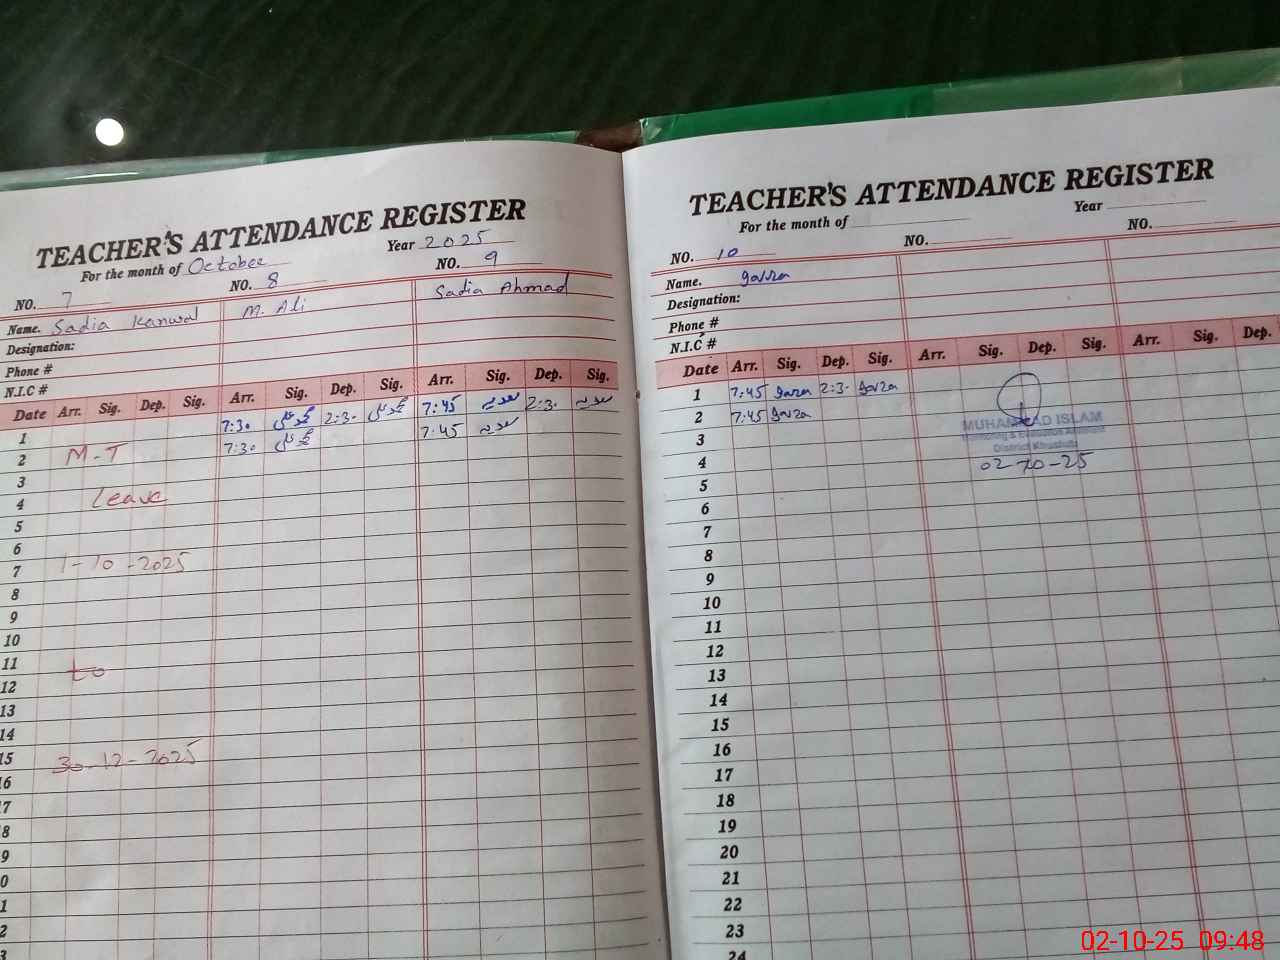 TEACHER'S ATTENDANCE REGISTER
For the month of October Year 2025
NO. 7 NO. 8 NO. 9
Name. Sadia Kanwal M. Ali Sadia Ahmad
Designation:
Phone #
N.I.C #
Date Arr. Sig. Dep. Sig. Arr. Sig. Dep. Sig. Arr. Sig. Dep. Sig.
1 7:30 2:30 7:45 2:30
2 M-T 7:30 7:45
3
4 Leave
5
6
7 1-10-2025
8
9
10
11
12 to
13
14
15 30-12-2025
16
TEACHER'S ATTENDANCE REGISTER
For the month of Year
NO. 10 NO. NO.
Name.
Designation:
Phone #
N.I.C #
Date Arr. Sig. Dep. Sig. Arr. Sig. Dep. Sig. Arr. Sig. Dep.
1 7:45 2:30
2 7:45 MUHAMMAD ISLAM
3 Monitoring & Evaluation Assistant
District Khushab
4 02-10-25
5
6
7
8
9
10
11
12
13
14
15
16
17
18
19
20
21
22
23
24
02-10-25 09:48